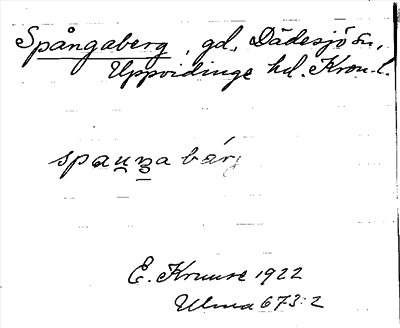 Spångaberg, gd, Dädesjö sn,
Uppvidinge hd. Kron. l.
spaṵnza bárj
E. Kruuse 1922
Ulma 673:2